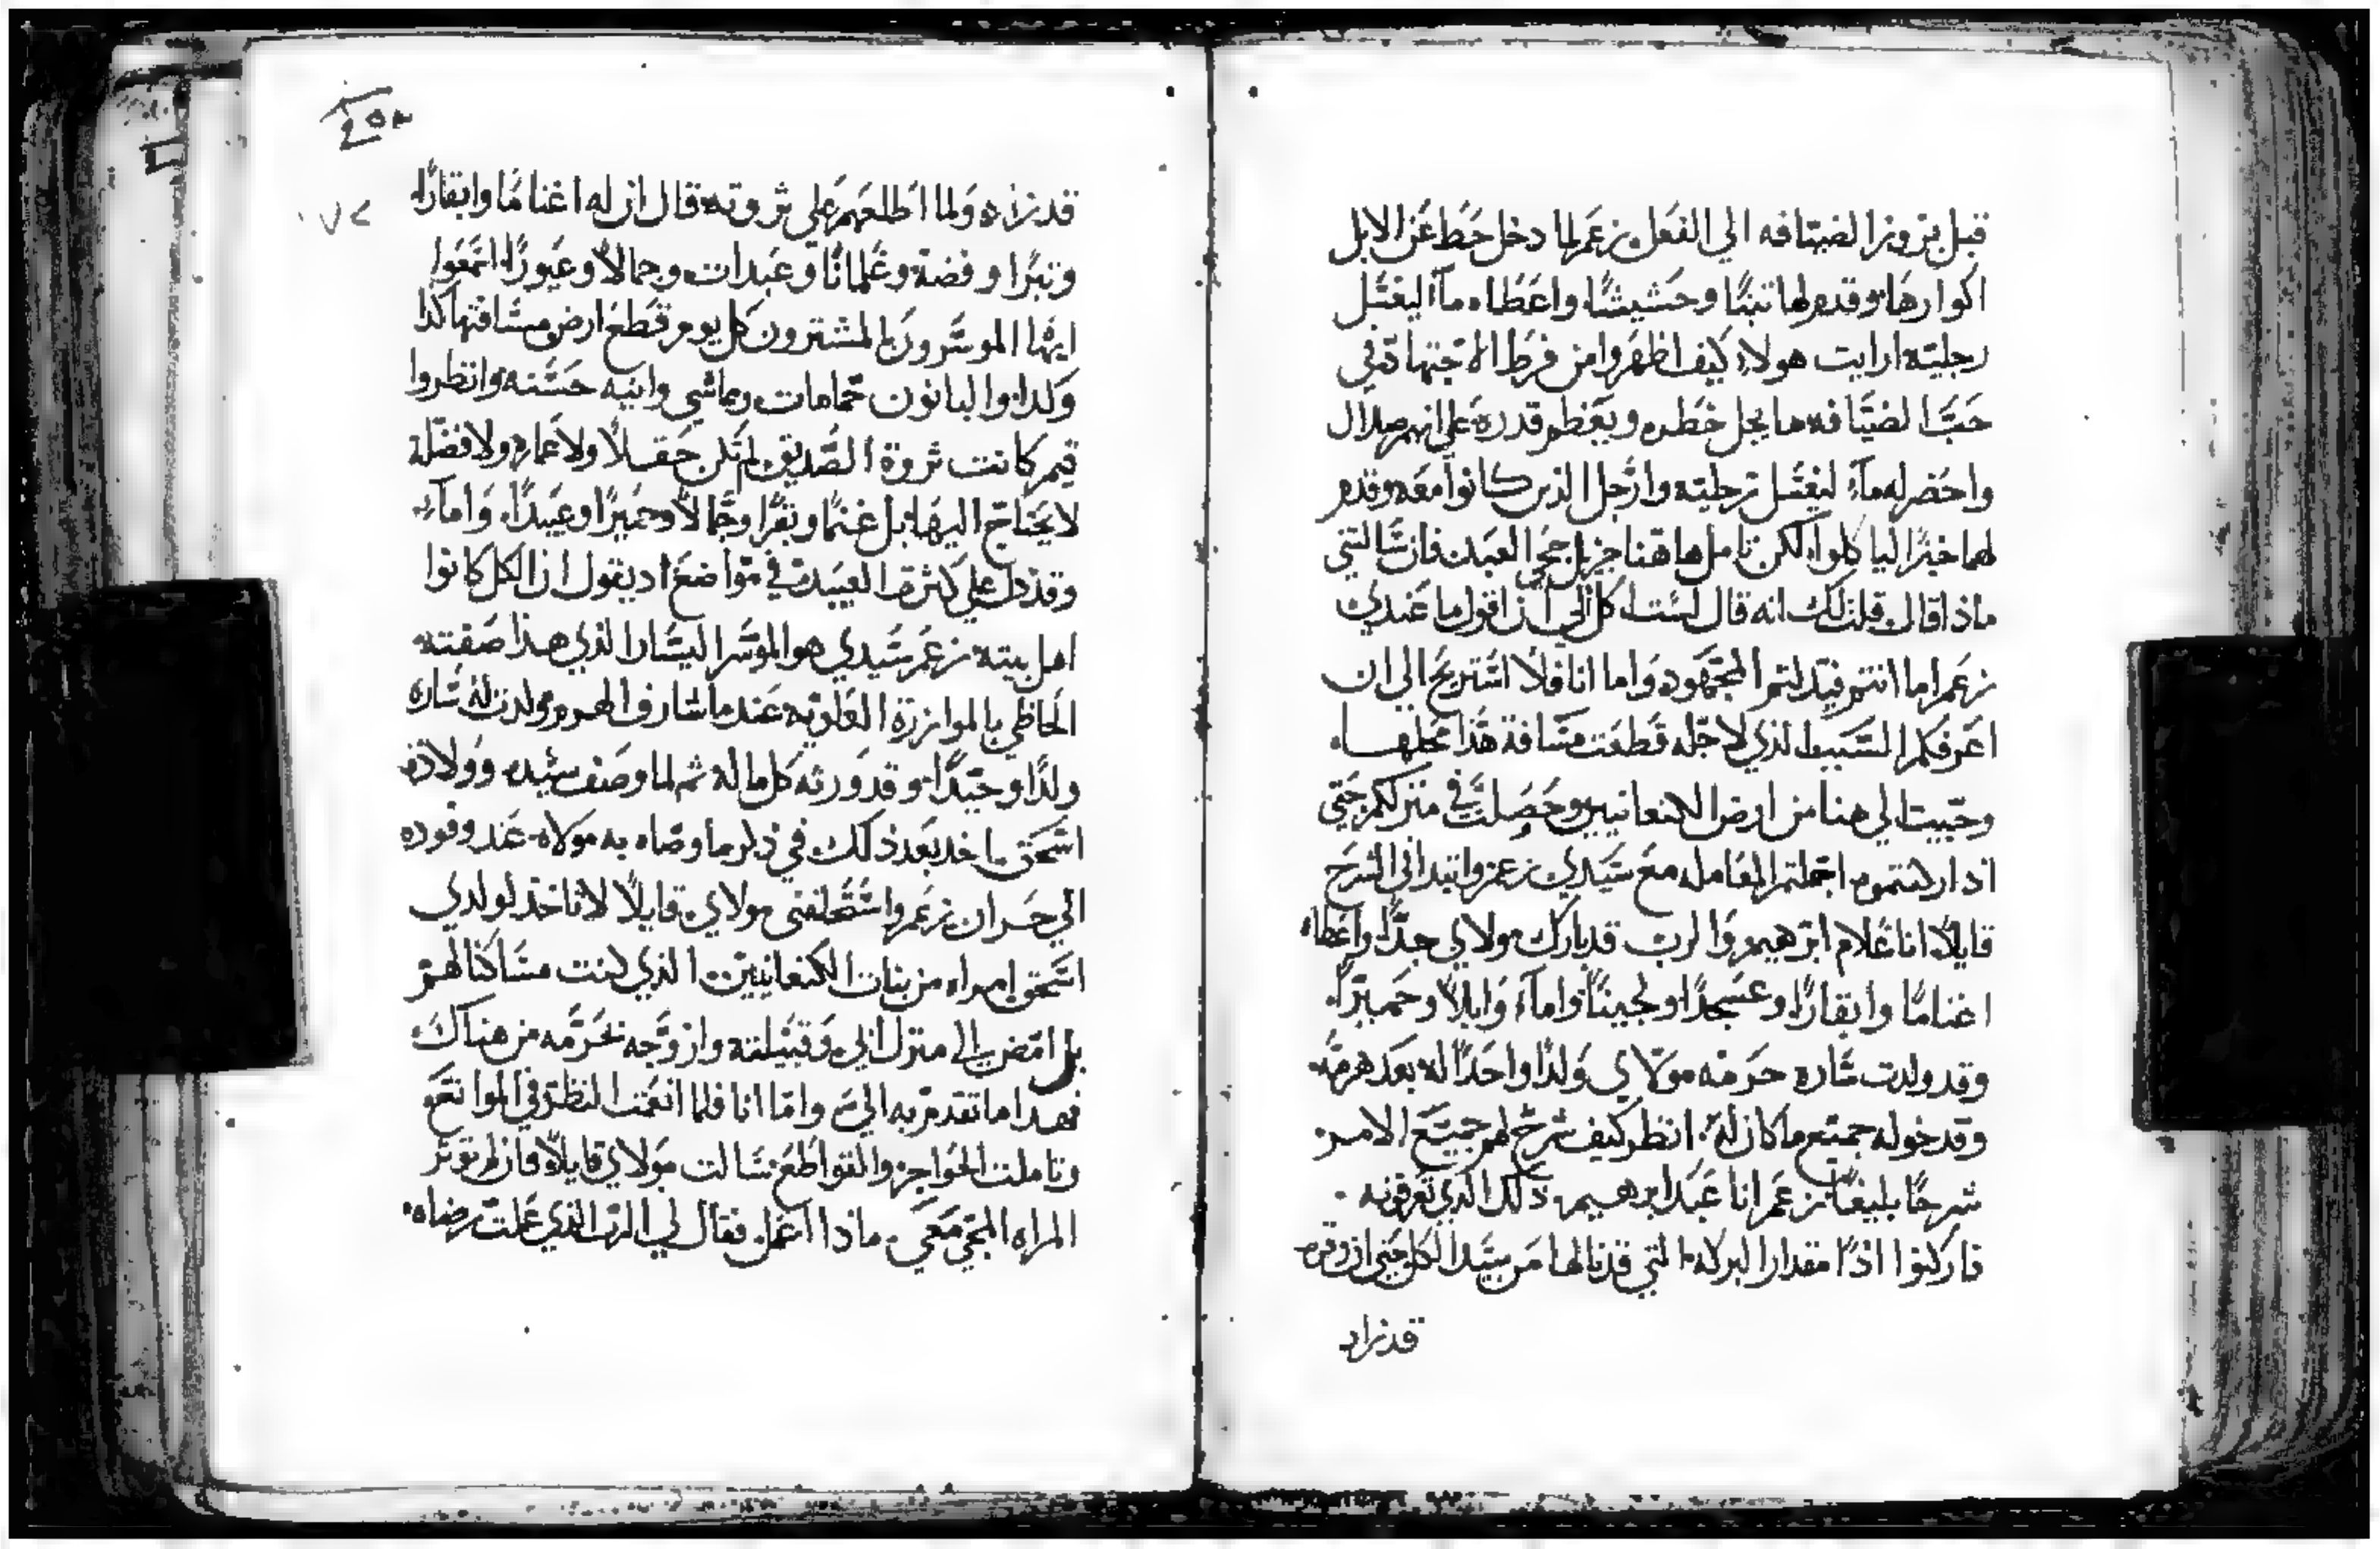 قبل بروز الضيافه الي الفعل زعم لما دخل حط عن الابل
اكوارها وقدم لها تبنًا وحشيشًا واعطاه مآء ليغسل
رجليه ارايت هولاء كيف اظهروا من فرط الاجتهاد في
حب الضيافه ما يجل خطره ويعظم قدره علي انهم ضلال
واحضر له مآء ليغسل رجليه وارجل الذين كانوا معه وقدم
لهما خبزًا لياكلوا لكن تامل هاهنا جزيل حجي العبد فان سالتني
ماذا قال قلت لك انه قال لست اكل الي ان اقول ما عندي
زعم اما انتم فبدلتم المجهود واما انا فلا استريح الي ان
اعرفكم السبب الذي لاجله قطعت مسافة هذا محلها
وجيت الي هنا من ارض الكنعانيين وحصلت في منزلكم حتي
اذا اركنتموه اجملتم المعامله مع سيدي زعم وابتدا في الشرح
قايلاً انا غلام ابرهيم والرب قد بارك مولاي جدًا واعطاه
اغنامًا وابقارًا وعسجدًا ولجينًا وامآء وابلاً وحميرًا
وقد ولدت ساره حرمة مولاي ولدًا واحدًا له بعد هرمه
وقد خوله جميع ما كان له انظر كيف شرح لهم جميع الامر
شرحًا بليغًا زعم انا عبد ابرهيم ذلك الذي تعرفونه
فاركنوا اذًا مقدار البركه التي قد نالها من سيد الكل حتي ان وفره
قد زاد
٢٥٨
٧٢
قد زاد ولما اطلعهم علي ثروته قال ان له اغنامًا وابقارًا
وتبرًا وفضة وغلمانًا وعبدات وجمالاً وعيورًا اسمعوا
ايها الموسرون المشترون كل يوم قطع ارض مسافتها كذا
وكدا والبانون حمامات ومماشي وابنيه حسنه وانظروا
فيم كانت ثروة الصديق لم تكن حقلاً ولا عماره ولا فضلة
لا يحتاج اليها بل غنمًا وبقرًا وجمالاً وحميرًا وعبيدًا وامآء
وقد دل علي كثرة العبيد في مواضع اد يقول ان الكل كانوا
اهل بيته زعم سيدي هو الموسر اليسار الذي هذا صفته
الحاظي بالموازرة العلويه عند ما شارف الهرم ولدت له ساره
ولدًا وحيدًا وقد ورثه كل ماله ثم لما وصف سيده وولادة
اسحق ياخد بعد ذلك في ذكر ما وصاه به مولاه عند وفوده
الي حران زعم واستحلفني مولاي قايلاً لا تاخد لولدي
اسحق امراه من بنات الكنعانيين الذي كنت مساكنًا لهم
بل امض الي منزل ابي وقبيلته وازوجه بحرمه من هناك
فهدا ما تقدم به الي واما انا فلما انعمت النظر في الموانع
وتاملت الحواجز والقواطع سالت مولاي قايلاً وان لم توثر
المراه المجي معي ماذا اعمل فقال لي الرب الذي عملت رضاه